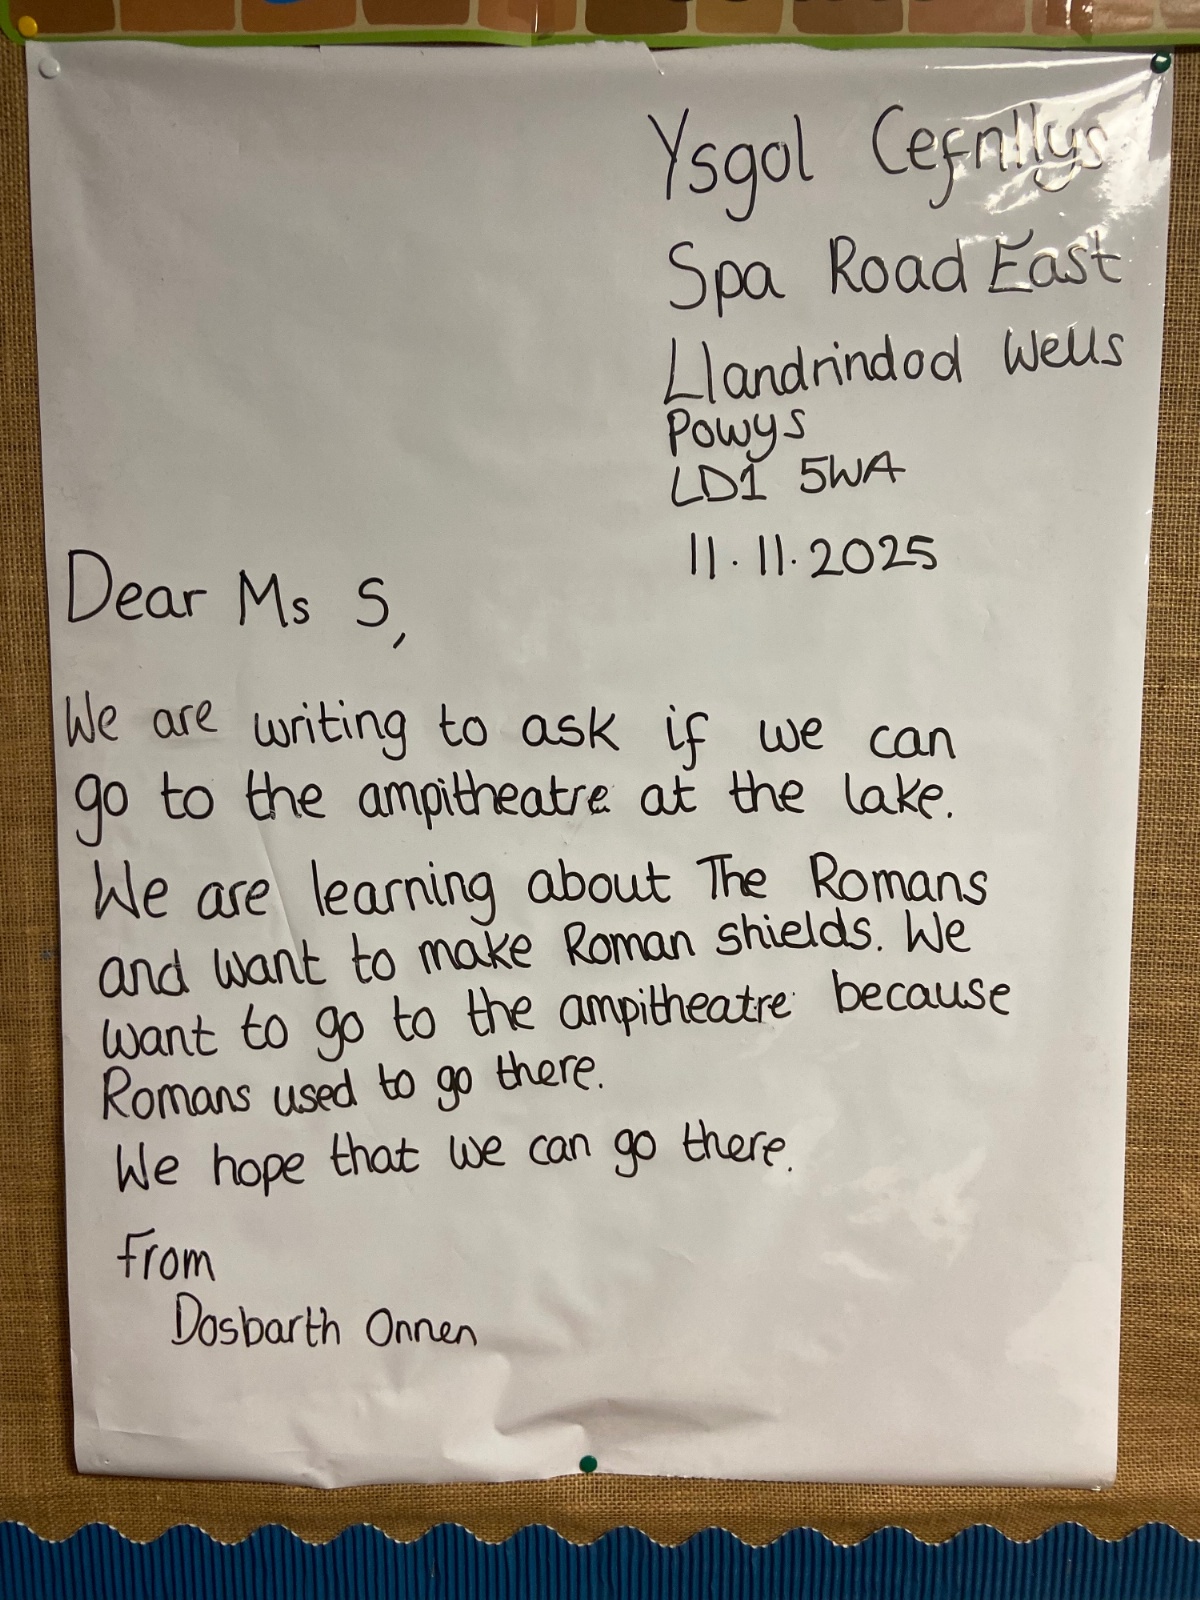 Ysgol Cefnllys
Spa Road East
Llandrindod Wells
Powys
LD1 5WA
11.11.2025
Dear Ms S,
We are writing to ask if we can
go to the ampitheatre at the lake.
We are learning about The Romans
and want to make Roman shields. We
want to go to the ampitheatre because
Romans used to go there.
We hope that we can go there.
From
Dosbarth Onnen